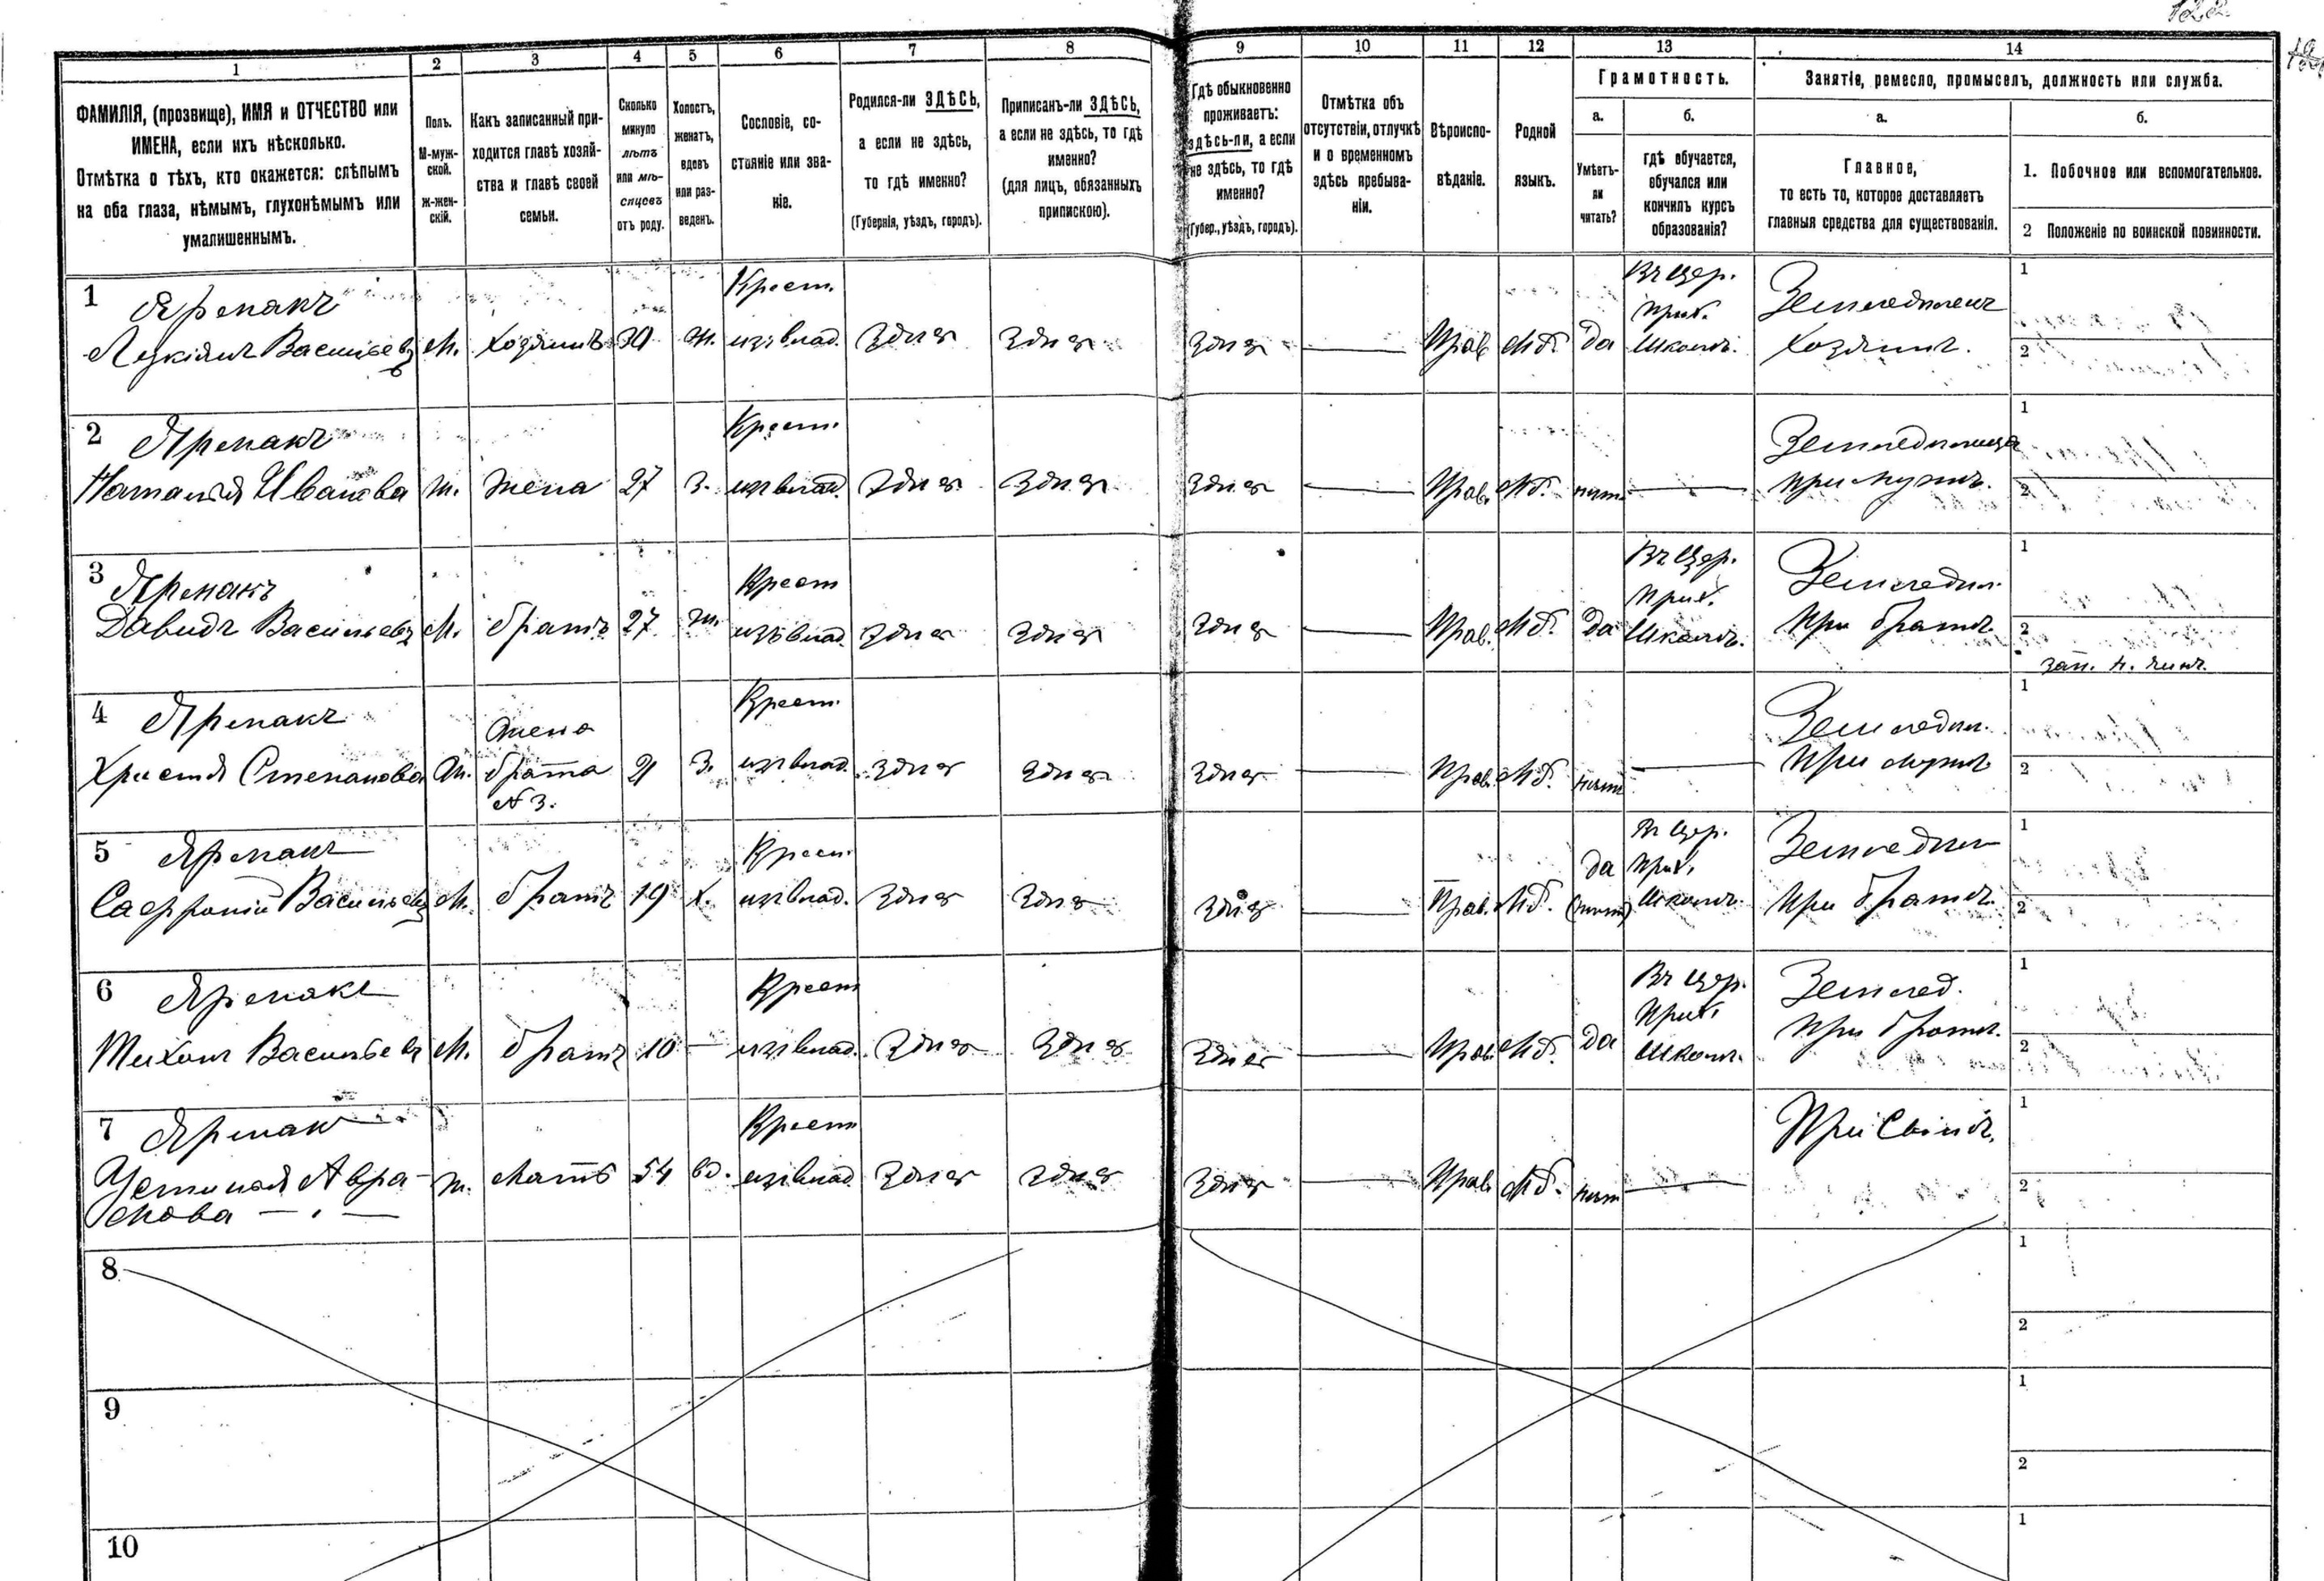 122
1 2 3 4 5 6 7 8 9 10 11 12 13 14
ФАМИЛІЯ, (прозвище), ИМЯ и ОТЧЕСТВО или
ИМЕНА, если ихъ нѣсколько.
Отмѣтка о тѣхъ, кто окажется: слѣпымъ
на оба глаза, нѣмымъ, глухонѣмымъ или
умалишеннымъ.
Полъ.
М-муж-
ской.
Ж-жен-
скій.
Какъ записанный при-
ходится главѣ хозяй-
ства и главѣ своей
семьи.
Сколько
минуло
лѣтъ
или мѣ-
сяцевъ
отъ роду.
Холостъ,
женатъ,
вдовъ
или раз-
веденъ.
Сословіе, со-
стояніе или зва-
ніе.
Родился-ли ЗДѢСЬ,
а если не здѣсь,
то гдѣ именно?
(Губернія, уѣздъ, городъ).
Приписанъ-ли ЗДѢСЬ,
а если не здѣсь, то гдѣ
именно?
(для лицъ, обязанныхъ
припискою).
Гдѣ обыкновенно
проживаетъ:
здѣсь-ли, а если
не здѣсь, то гдѣ
именно?
(Губер., уѣздъ, городъ).
Отмѣтка объ
отсутствіи, отлучкѣ
и о временномъ
здѣсь пребыва-
ніи.
Вѣроиспо-
вѣданіе.
Родной
языкъ.
Грамотность.
а.
Умѣетъ-
ли
читать?
б.
гдѣ обучается,
обучался или
кончилъ курсъ
образованія?
Занятіе, ремесло, промыселъ, должность или служба.
а.
Главное,
то есть то, которое доставляетъ
главныя средства для существованія.
б.
1. Побочное или вспомогательное.
2 Положеніе по воинской повинности.
1 Яремакъ Крест. Въ Цер. Земледѣлецъ 1
прих.
Васильевъ М. Хозяинъ 30 ж. изъ влад. Здѣсь Здѣсь Здѣсь — Прав. Мб. да Школѣ. Хозяинъ. 2
2 Яремакъ Крест. Земледѣлица 1
Наталія Иванова ж. Жена 27 З. изъ влад. Здѣсь Здѣсь Здѣсь — Прав. Мб. нѣтъ — при мужѣ. 2
3 Яремакъ Крест Въ Цер. Земледѣл. 1
Прих.
Давидъ Васильевъ М. братъ 27 ж. изъ влад. Здѣсь Здѣсь Здѣсь — Прав. Мб. да Школѣ. При братѣ. 2
зап. н. чинъ.
4 Яремакъ Жена Крест. Земледѣл. 1
Христя Степанова Ж. брата 21 З. изъ влад. Здѣсь Здѣсь Здѣсь — Прав. Мб. нѣтъ — При мужѣ 2
№ 3.
5 Яремакъ Крест. да Въ Цер. Земледѣл 1
Прих.
Васильевъ М. братъ 19 х. изъ влад. Здѣсь Здѣсь Здѣсь — Прав. Мб. Школѣ. При братѣ. 2
6 Яремакъ Крест Въ Цер. Землед. 1
Прих.
Тихонъ Васильевъ М. братъ 10 — изъ влад. Здѣсь Здѣсь Здѣсь — Прав. Мб. да Школѣ. При братѣ. 2
7 Яремакъ Крест При Сынѣ. 1
Устинія Авра- ж. мать 54 вд. изъ влад Здѣсь Здѣсь Здѣсь — Прав. Мб. нѣтъ — 2
мова
8 1
2
9 1
2
10 1